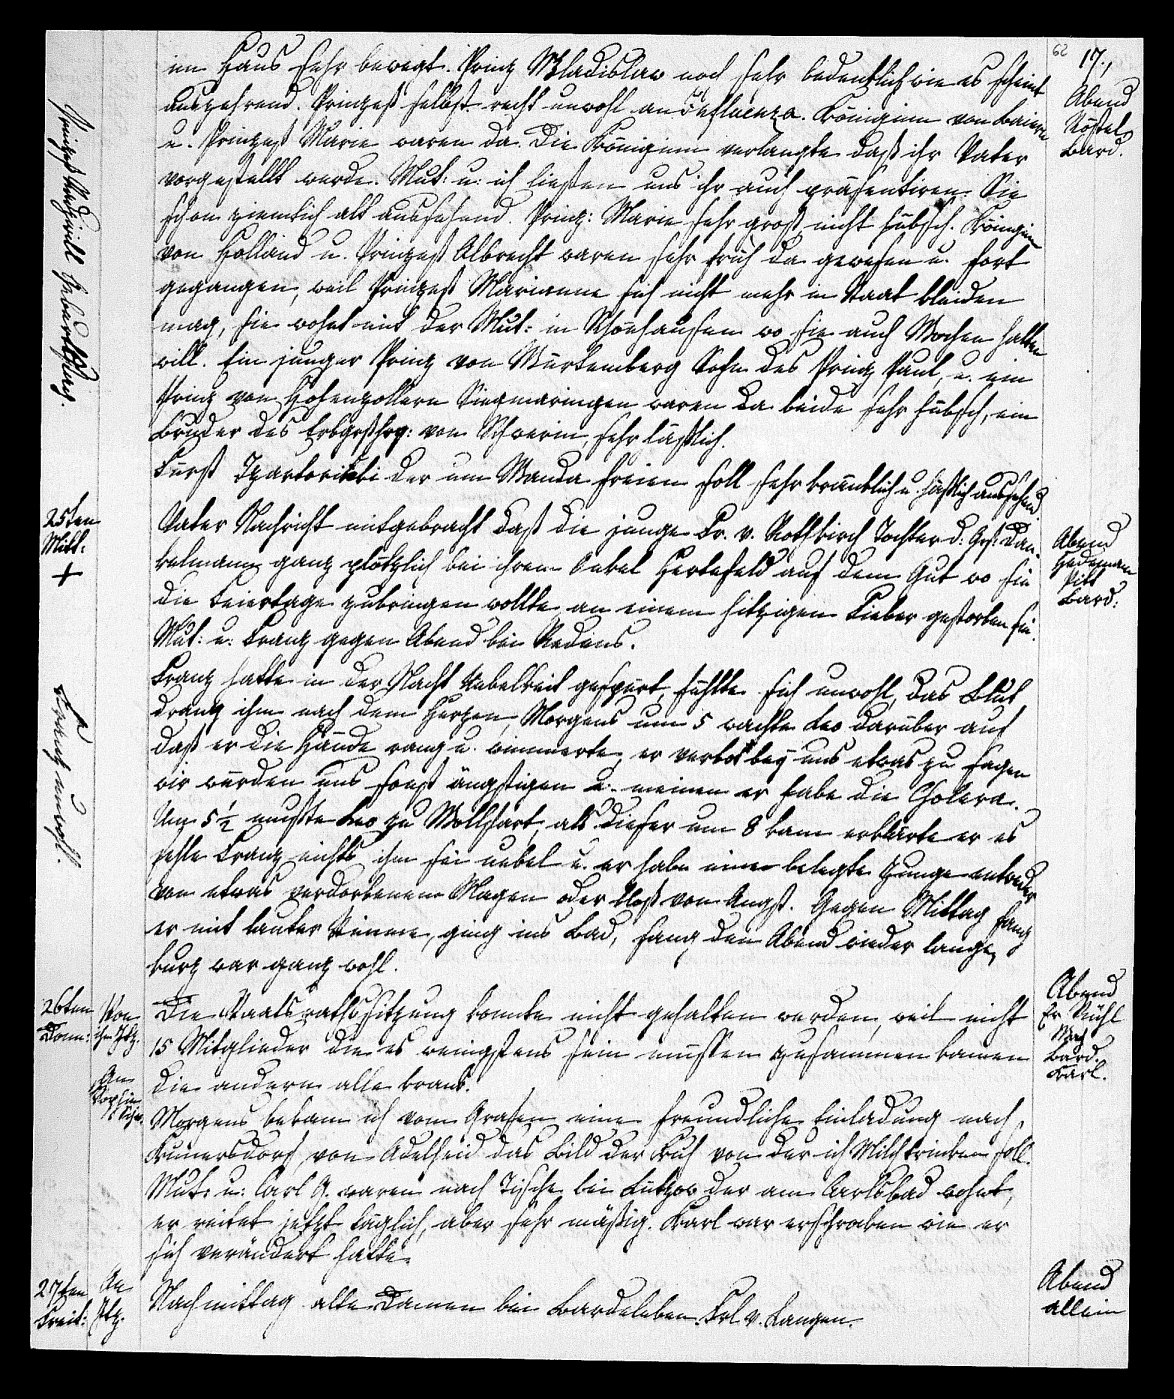 62
17,
im Haus sehr bewegt. Prinz Wladislaw noch sehr bedenklich wie es scheint
auszehrend. Prinzeß selbst recht unwohl an Influenza. Königinn von Baiern
u. Prinzeß Marie waren da. Die Königinn verlangte daß ihr Vater
vorgestellt werde. Mut: u: ich ließen uns ihr auch präsentiren. Sie
schon ziemlich alt aussehend. Prinz: Marie sehr groß nicht hübsch. Königin
von Holland u. Prinzeß Albrecht waren sehr früh da gewesen u. fort
gegangen, weil Prinzeß Marianne sich nicht mehr in Staat kleiden
mag, sie wohnt mit der Mut: in Schönhausen wo sie auch Wochen halten
will. Ein junger Prinz von Würtemberg Sohn des Prinz Paul, u. ein
Prinz von Hohenzollern Siegmaringen waren da beide sehr hübsch, ein
Bruder des Erbgroßhrz: von Schwerin, sehr häßlich.
Fürst Czartoriski der um Wanda freien soll sehr kränklich u. häßlich aussehend
Abend
Röstels
Bard.
Prinzeß Radziwill Geburtstag.
25ten
Mitt:
+
Vater Nachricht mitgebracht daß die junge Fr. v. Rothkirch Tochter d: Grf: Dan-
kelmann ganz plötzlich bei ihrem Onkel Hertefeld auf dem Gut wo sie
die Feiertage zubringen wollte an einem hitzigen Fieber gestorben sei.
Mut: u: Franz gegen Abend bei Redens.
Franz hatte in der Nacht Uebelkeit gespürt, fühlte sich unwohl, das Blut
drang ihm nach dem Herzen, Morgens um 5 wachte Leo darüber auf
daß er die Hände rang u. wimmerte, er verbot bey uns etwas zu sagen
wir würden uns sonst ängstigen u. meinen er habe die Cholera.
Um 5½ mußte Leo zu Wollfart, als dieser um 8 kam erklärte er es
fehle Franz nichts ihm sei uebel u. er habe eine belegte Zunge entweder
von etwas verdorbenem Magen oder bloß von Angst. Gegen Mittag fang
er mit lauter Stimme, ging ins Bad, sang den Abend wieder lange,
kurz war ganz wohl.
Abend
Hedemann
Pitt
Bard:
Franz unwohl.
26ten
Donn:
Von
An
Sophie
Die Staatsrathssitzung konnte nicht gehalten werden, weil nicht
15 Mitglieder die es wenigstens sein müssen zusammen kamen
die andern alle krank.
Morgens bekam ich vom Grafen eine freundliche Einladung nach
Kunersdorf, von Adelheid das Bild der Kuh von der ich Milch trinken soll.
Mut: u: Carl G. waren nach Tische bei Lützow der am Carlsbad wohnt,
er reitet jetzt täglich, aber sehr mäßig. Karl war erschrocken wie er
sich verändert hatte.
Abend
Bard.
Karl.
27ten
Freit:
An
Nachmittag alte Damen bei Bardeleben. Frl. v. Langen.
Abend
allein